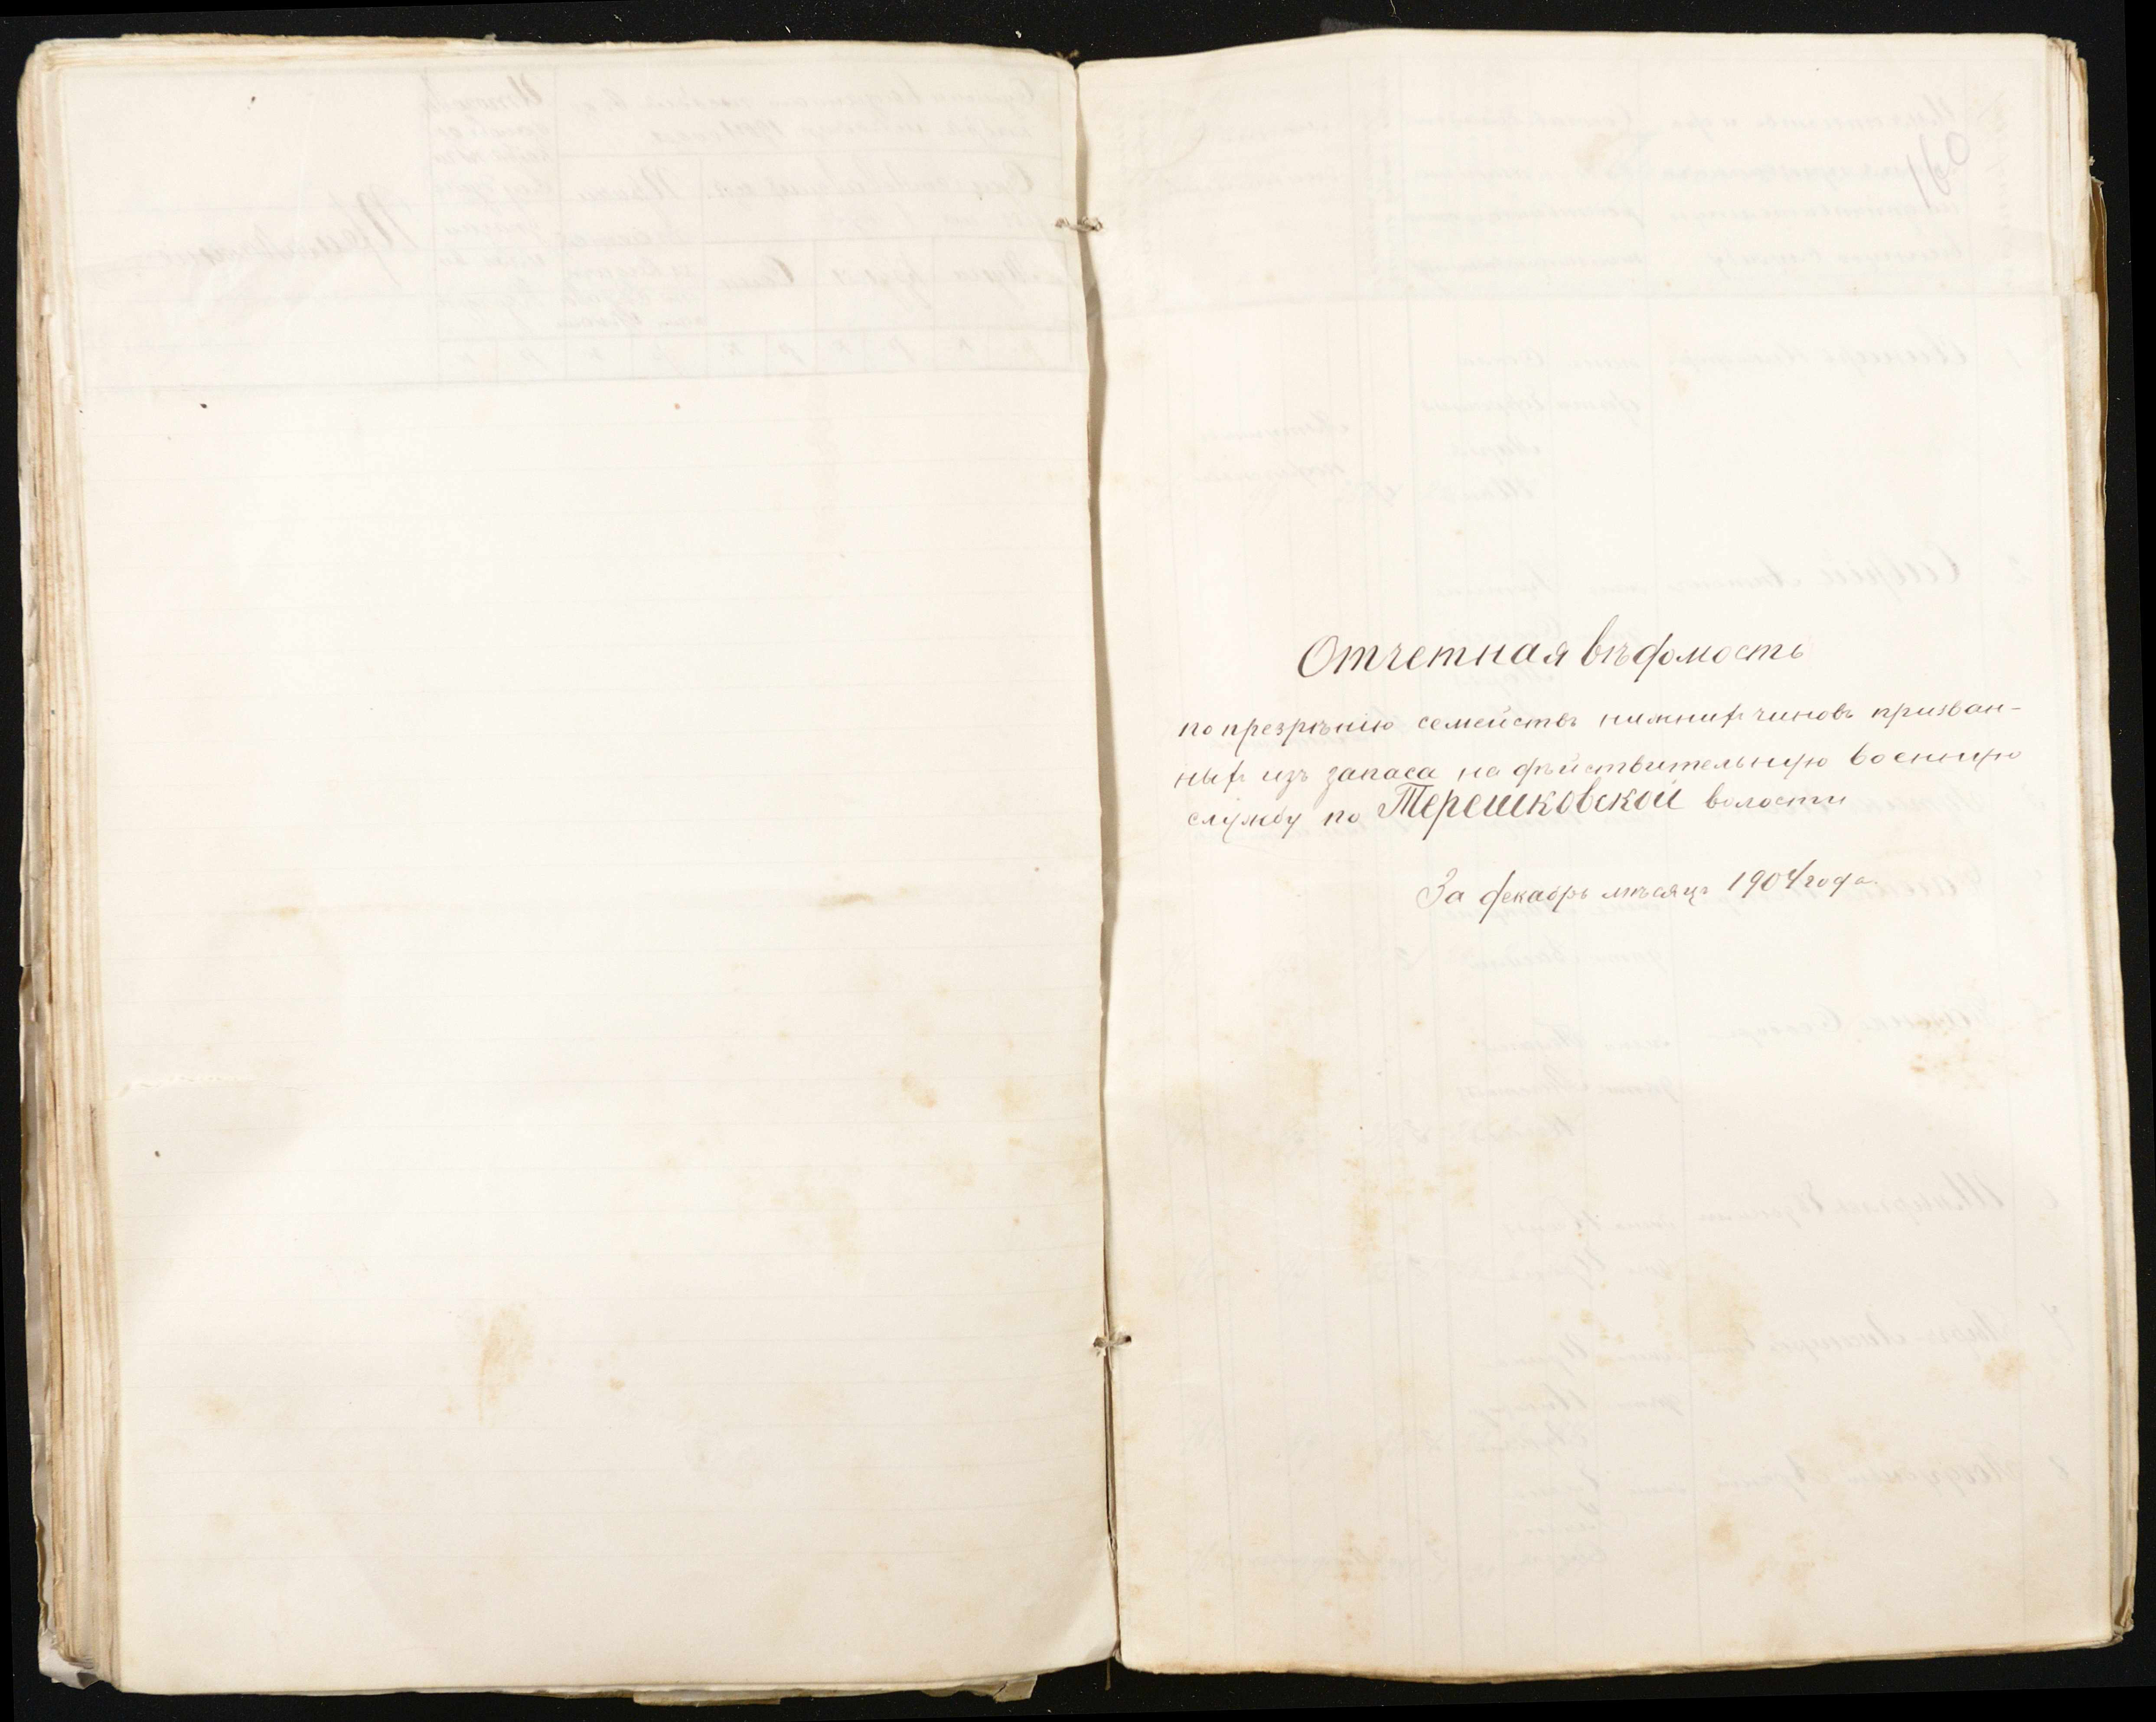 160
Отчетная вѣдомость
по презрѣнію семействъ нижнихъ чиновъ призван-
ныхъ изъ запаса на дѣйствительную военную
службу по Терешковской волости
За декабрь мѣсяцъ 1904 года.